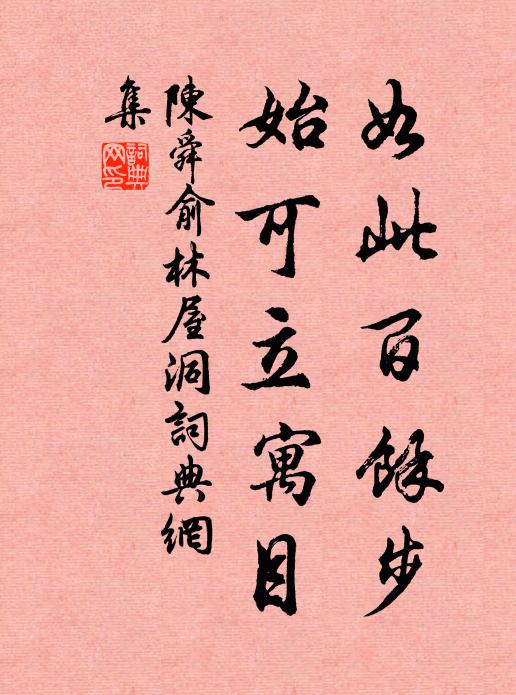 如此百餘步
始可立寓目
陳舜俞林屋洞詞典網
集
詞典
网印